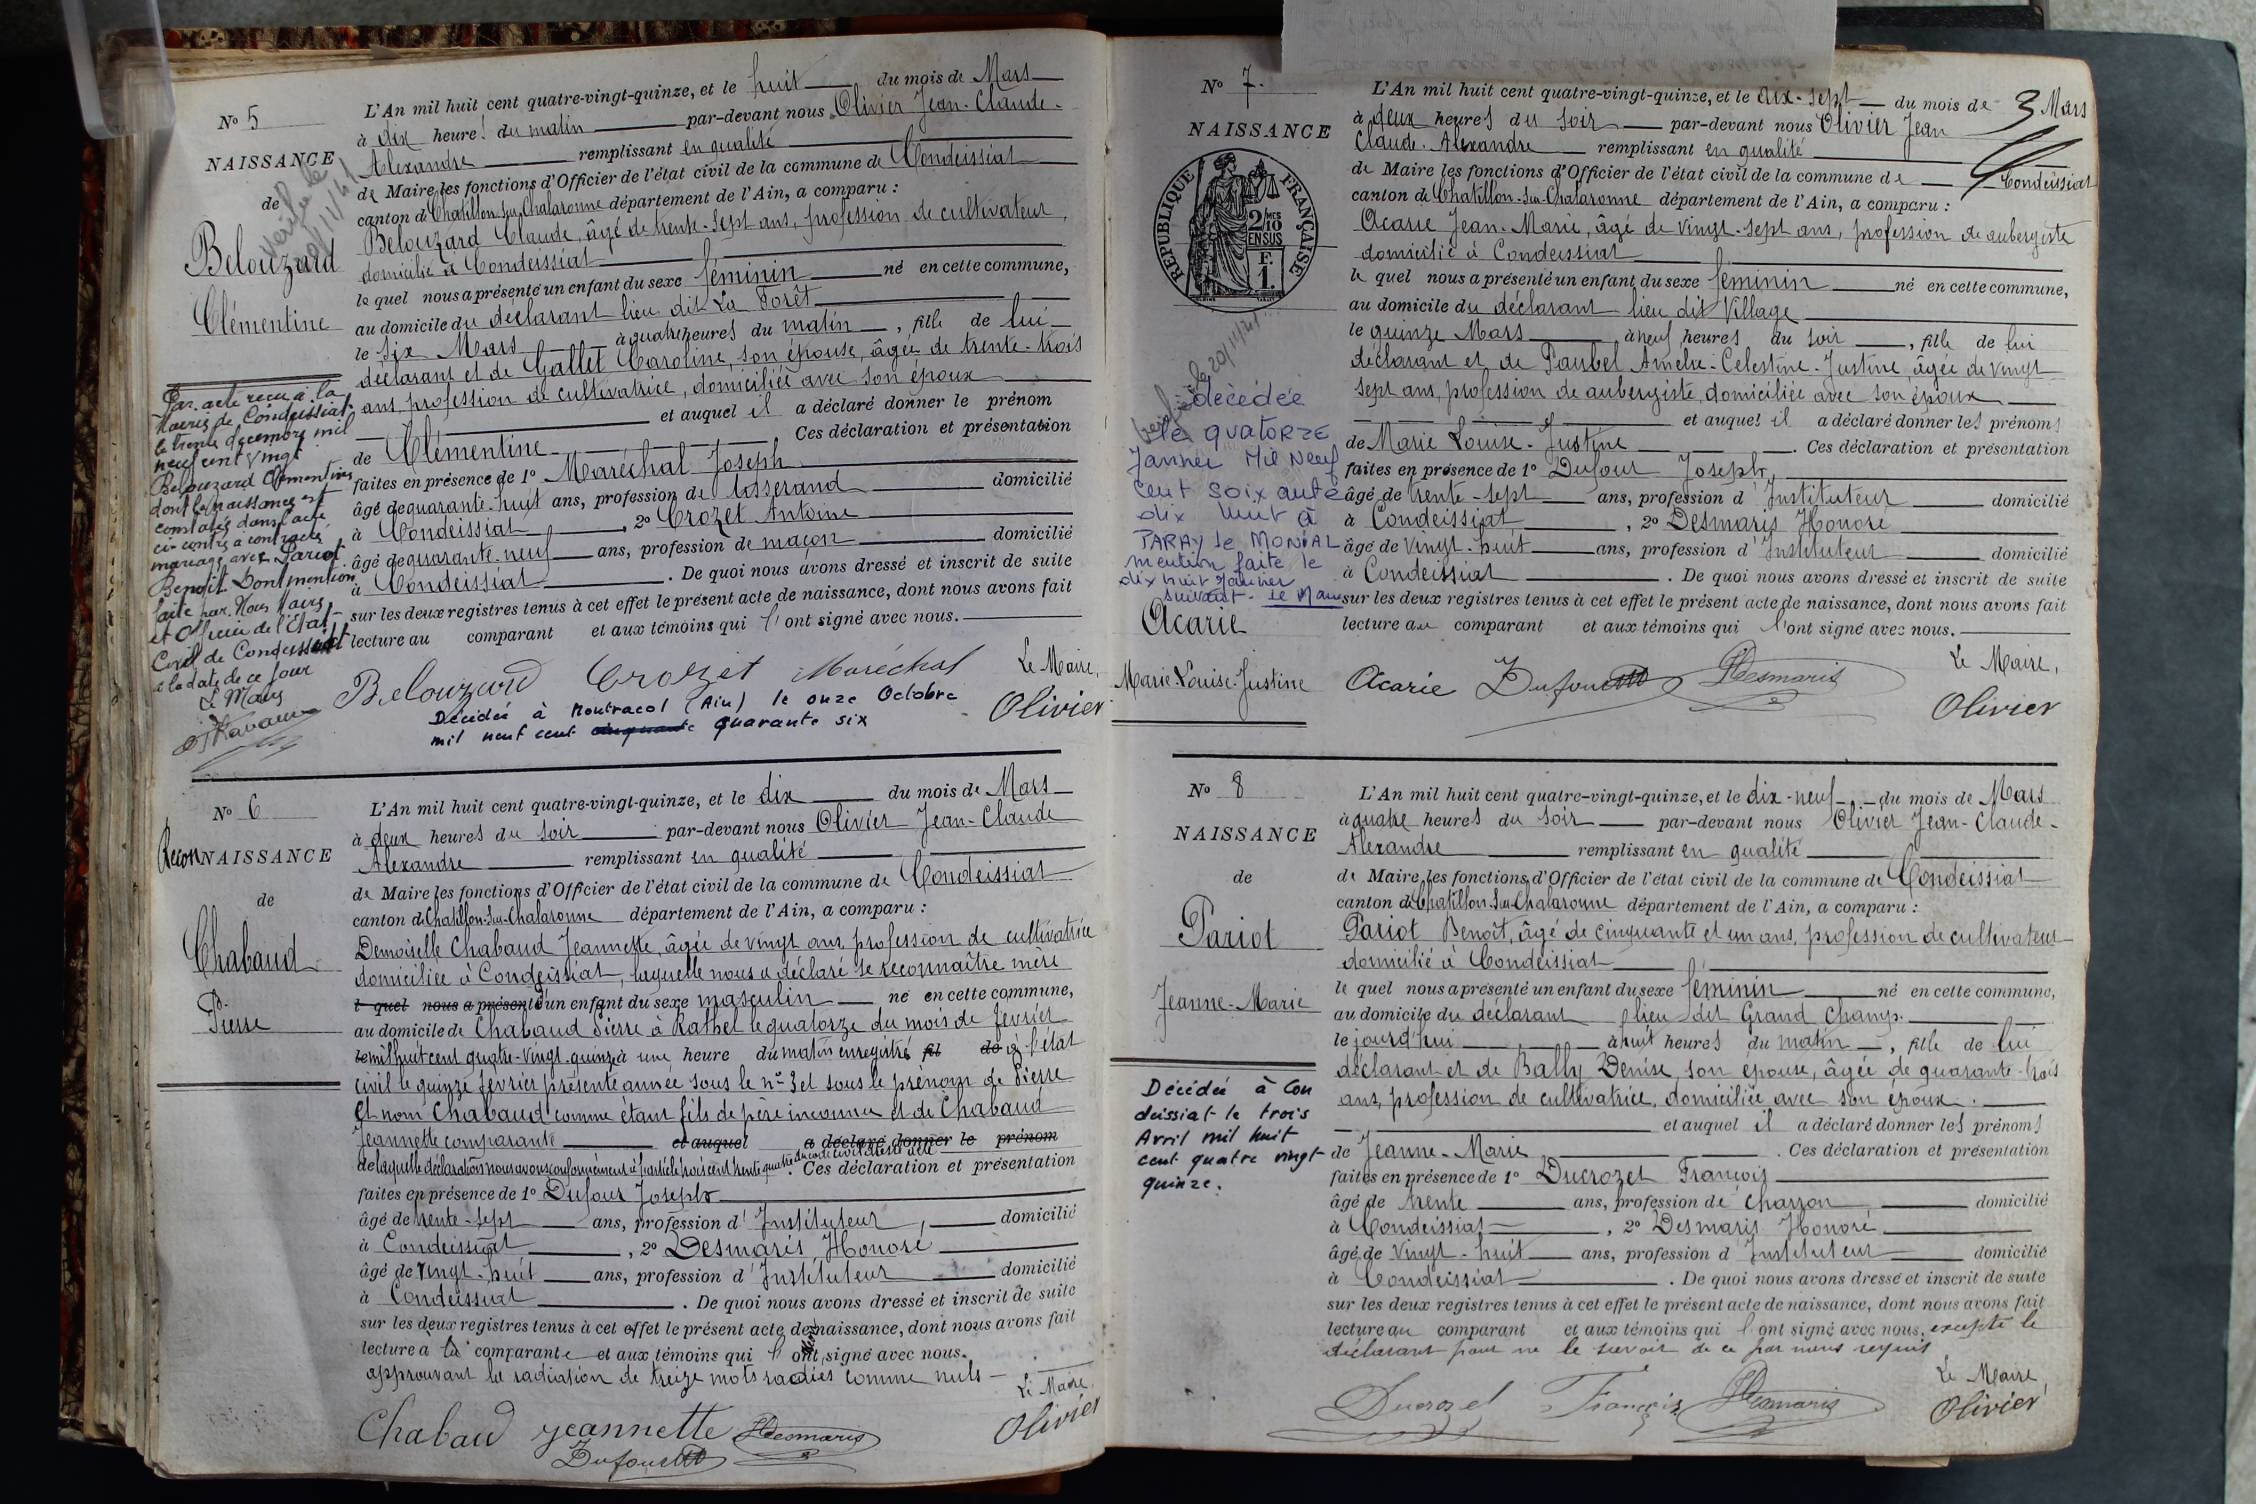 N° 5
NAISSANCE
de
Belouzard
Clémentine
vérifié le
20/11/41
Par acte reçu à la
Mairie de Condeissiat
le trente décembre mil
neuf cent vingt
Belouzard Clémentine
dont la naissance est
constatée dans l'acte
ci-contre a contracté
mariage avec Pariot
Benoît Dont mention
faite par Nous Maire
et Officier de l'Etat
Civil de Condeissiat
a la date de ce jour
Le Maire
L'An mil huit cent quatre-vingt-quinze, et le huit du mois de Mars
à dix heures du matin par-devant nous Olivier Jean-Claude-
Alexandre remplissant en qualité
de Maire les fonctions d'Officier de l'état civil de la commune de Condeissiat
canton de Chatillon-sur-Chalaronne département de l'Ain, a comparu :
Belouzard Claude, âgé de trente-sept ans, profession de cultivateur,
domicilié à Condeissiat
le quel nous a présenté un enfant du sexe féminin né en cette commune,
au domicile du déclarant lieu dit La Forêt
le six Mars à quatre heures du matin, fille de lui
déclarant et de Gallet Caroline, son épouse, âgée de trente-trois
ans, profession de cultivatrice, domiciliée avec son époux
et auquel il a déclaré donner le prénom
de Clémentine Ces déclaration et présentation
faites en présence de 1° Maréchal Joseph
âgé de quarante-huit ans, profession de tisserand domicilié
à Condeissiat, 2° Crozet Antoine
âgé de quarante-neuf ans, profession de maçon domicilié
à Condeissiat. De quoi nous avons dressé et inscrit de suite
sur les deux registres tenus à cet effet le présent acte de naissance, dont nous avons fait
lecture au comparant et aux témoins qui l'ont signé avec nous.
Le Maire,
Belouzard Crozet Maréchal Olivier
Décédée à Montracol (Ain) le onze Octobre
mil neuf cent cinquante quarante six
N° 6
ReconNAISSANCE
de
Chabaud
Pierre
L'An mil huit cent quatre-vingt-quinze, et le dix du mois de Mars
à deux heures du soir par-devant nous Olivier Jean-Claude
Alexandre remplissant en qualité
de Maire les fonctions d'Officier de l'état civil de la commune de Condeissiat
canton de Chatillon-sur-Chalaronne département de l'Ain, a comparu :
Demoiselle Chabaud Jeannette, âgée de vingt ans, profession de cultivatrice
domiciliée à Condeissiat, laquelle nous a déclaré se reconnaître mère
le quel nous a présenté d'un enfant du sexe masculin né en cette commune,
au domicile de Chabaud Pierre à Rathel le quatorze du mois de février
le mil huit cent quatre-vingt-quinze à une heure du matin enregistré fil de à l'état
civil le quinze février présente année sous le n° 3 et sous le prénom de Pierre
et nom Chabaud comme étant fils de père inconnu et de Chabaud
Jeannette comparante et auquel a déclaré donner le prénom
de laquelle déclaration nous avons conformément à l'article trois cent trente quatre du code civil dressé acte. Ces déclaration et présentation
faites en présence de 1° Dufour Joseph
âgé de trente-sept ans, profession d'Instituteur, domicilié
à Condeissiat, 2° Desmaris Honoré
âgé de vingt-huit ans, profession d'Instituteur domicilié
à Condeissiat. De quoi nous avons dressé et inscrit de suite
sur les deux registres tenus à cet effet le présent acte de naissance, dont nous avons fait
lecture à la comparante et aux témoins qui l'ont signé avec nous.
approuvant la radiation de treize mots radiés comme nuls
Le Maire,
Chabaud Jeannette Desmaris Olivier
Dufour
N° 7.
NAISSANCE
RÉPUBLIQUE FRANÇAISE
2/10 MES
EN SUS
F.
1.
vérifié le 20/11/41
décédée
le quatorze
Janvier Mil Neuf
Cent Soixante
dix huit à
PARAY le MONIAL
mention faite le
dix huit Janvier
suivant. Le Maire
Acarie
Marie-Louise-Justine
3
L'An mil huit cent quatre-vingt-quinze, et le dix-sept du mois de Mars
à deux heures du soir par-devant nous Olivier Jean
Claude-Alexandre remplissant en qualité
de Maire les fonctions d'Officier de l'état civil de la commune de Condeissiat
canton de Chatillon-sur-Chalaronne département de l'Ain, a comparu :
Acarie Jean-Marie, âgé de vingt-sept ans, profession de aubergiste
domicilié à Condeissiat
le quel nous a présenté un enfant du sexe féminin né en cette commune,
au domicile du déclarant lieu dit Village
le quinze Mars à neuf heures du soir, fille de lui
déclarant et de Paubel Amélie-Celestine-Justine, âgée de vingt
sept ans, profession de aubergiste, domiciliée avec son époux
et auquel il a déclaré donner les prénoms
de Marie Louise-Justine. Ces déclaration et présentation
faites en présence de 1° Dufour Joseph,
âgé de trente-sept ans, profession d'Instituteur domicilié
à Condeissiat, 2° Desmaris Honoré
âgé de vingt-huit ans, profession d'Instituteur domicilié
à Condeissiat. De quoi nous avons dressé et inscrit de suite
sur les deux registres tenus à cet effet le présent acte de naissance, dont nous avons fait
lecture au comparant et aux témoins qui l'ont signé avec nous.
Le Maire,
Acarie Dufour Desmaris Olivier
N° 8
NAISSANCE
de
Pariot
Jeanne-Marie
Décédée à Con
deissiat le trois
Avril mil huit
cent quatre vingt-
quinze.
L'An mil huit cent quatre-vingt-quinze, et le dix-neuf du mois de Mars
à quatre heures du soir par-devant nous Olivier Jean-Claude-
Alexandre remplissant en qualité
de Maire les fonctions d'Officier de l'état civil de la commune de Condeissiat
canton de Chatillon-sur-Chalaronne département de l'Ain, a comparu :
Pariot Benoît, âgé de cinquante et un ans, profession de cultivateur
domicilié à Condeissiat
le quel nous a présenté un enfant du sexe féminin né en cette commune,
au domicile du déclarant lieu dit Grand Champ.
le jourd'hui à huit heures du matin, fille de lui
déclarant et de Bally Denise, son épouse, âgée de quarante-trois
ans, profession de cultivatrice, domiciliée avec son époux.
et auquel il a déclaré donner les prénoms
de Jeanne-Marie. Ces déclaration et présentation
faites en présence de 1° Ducrozet François
âgé de trente ans, profession de charron domicilié
à Condeissiat, 2° Desmaris Honoré
âgé de vingt-huit ans, profession d'Instituteur domicilié
à Condeissiat. De quoi nous avons dressé et inscrit de suite
sur les deux registres tenus à cet effet le présent acte de naissance, dont nous avons fait
lecture au comparant et aux témoins qui l'ont signé avec nous, excepté le
déclarant pour ne le savoir de ce par nous requis
Le Maire,
Ducrozet François Desmaris Olivier